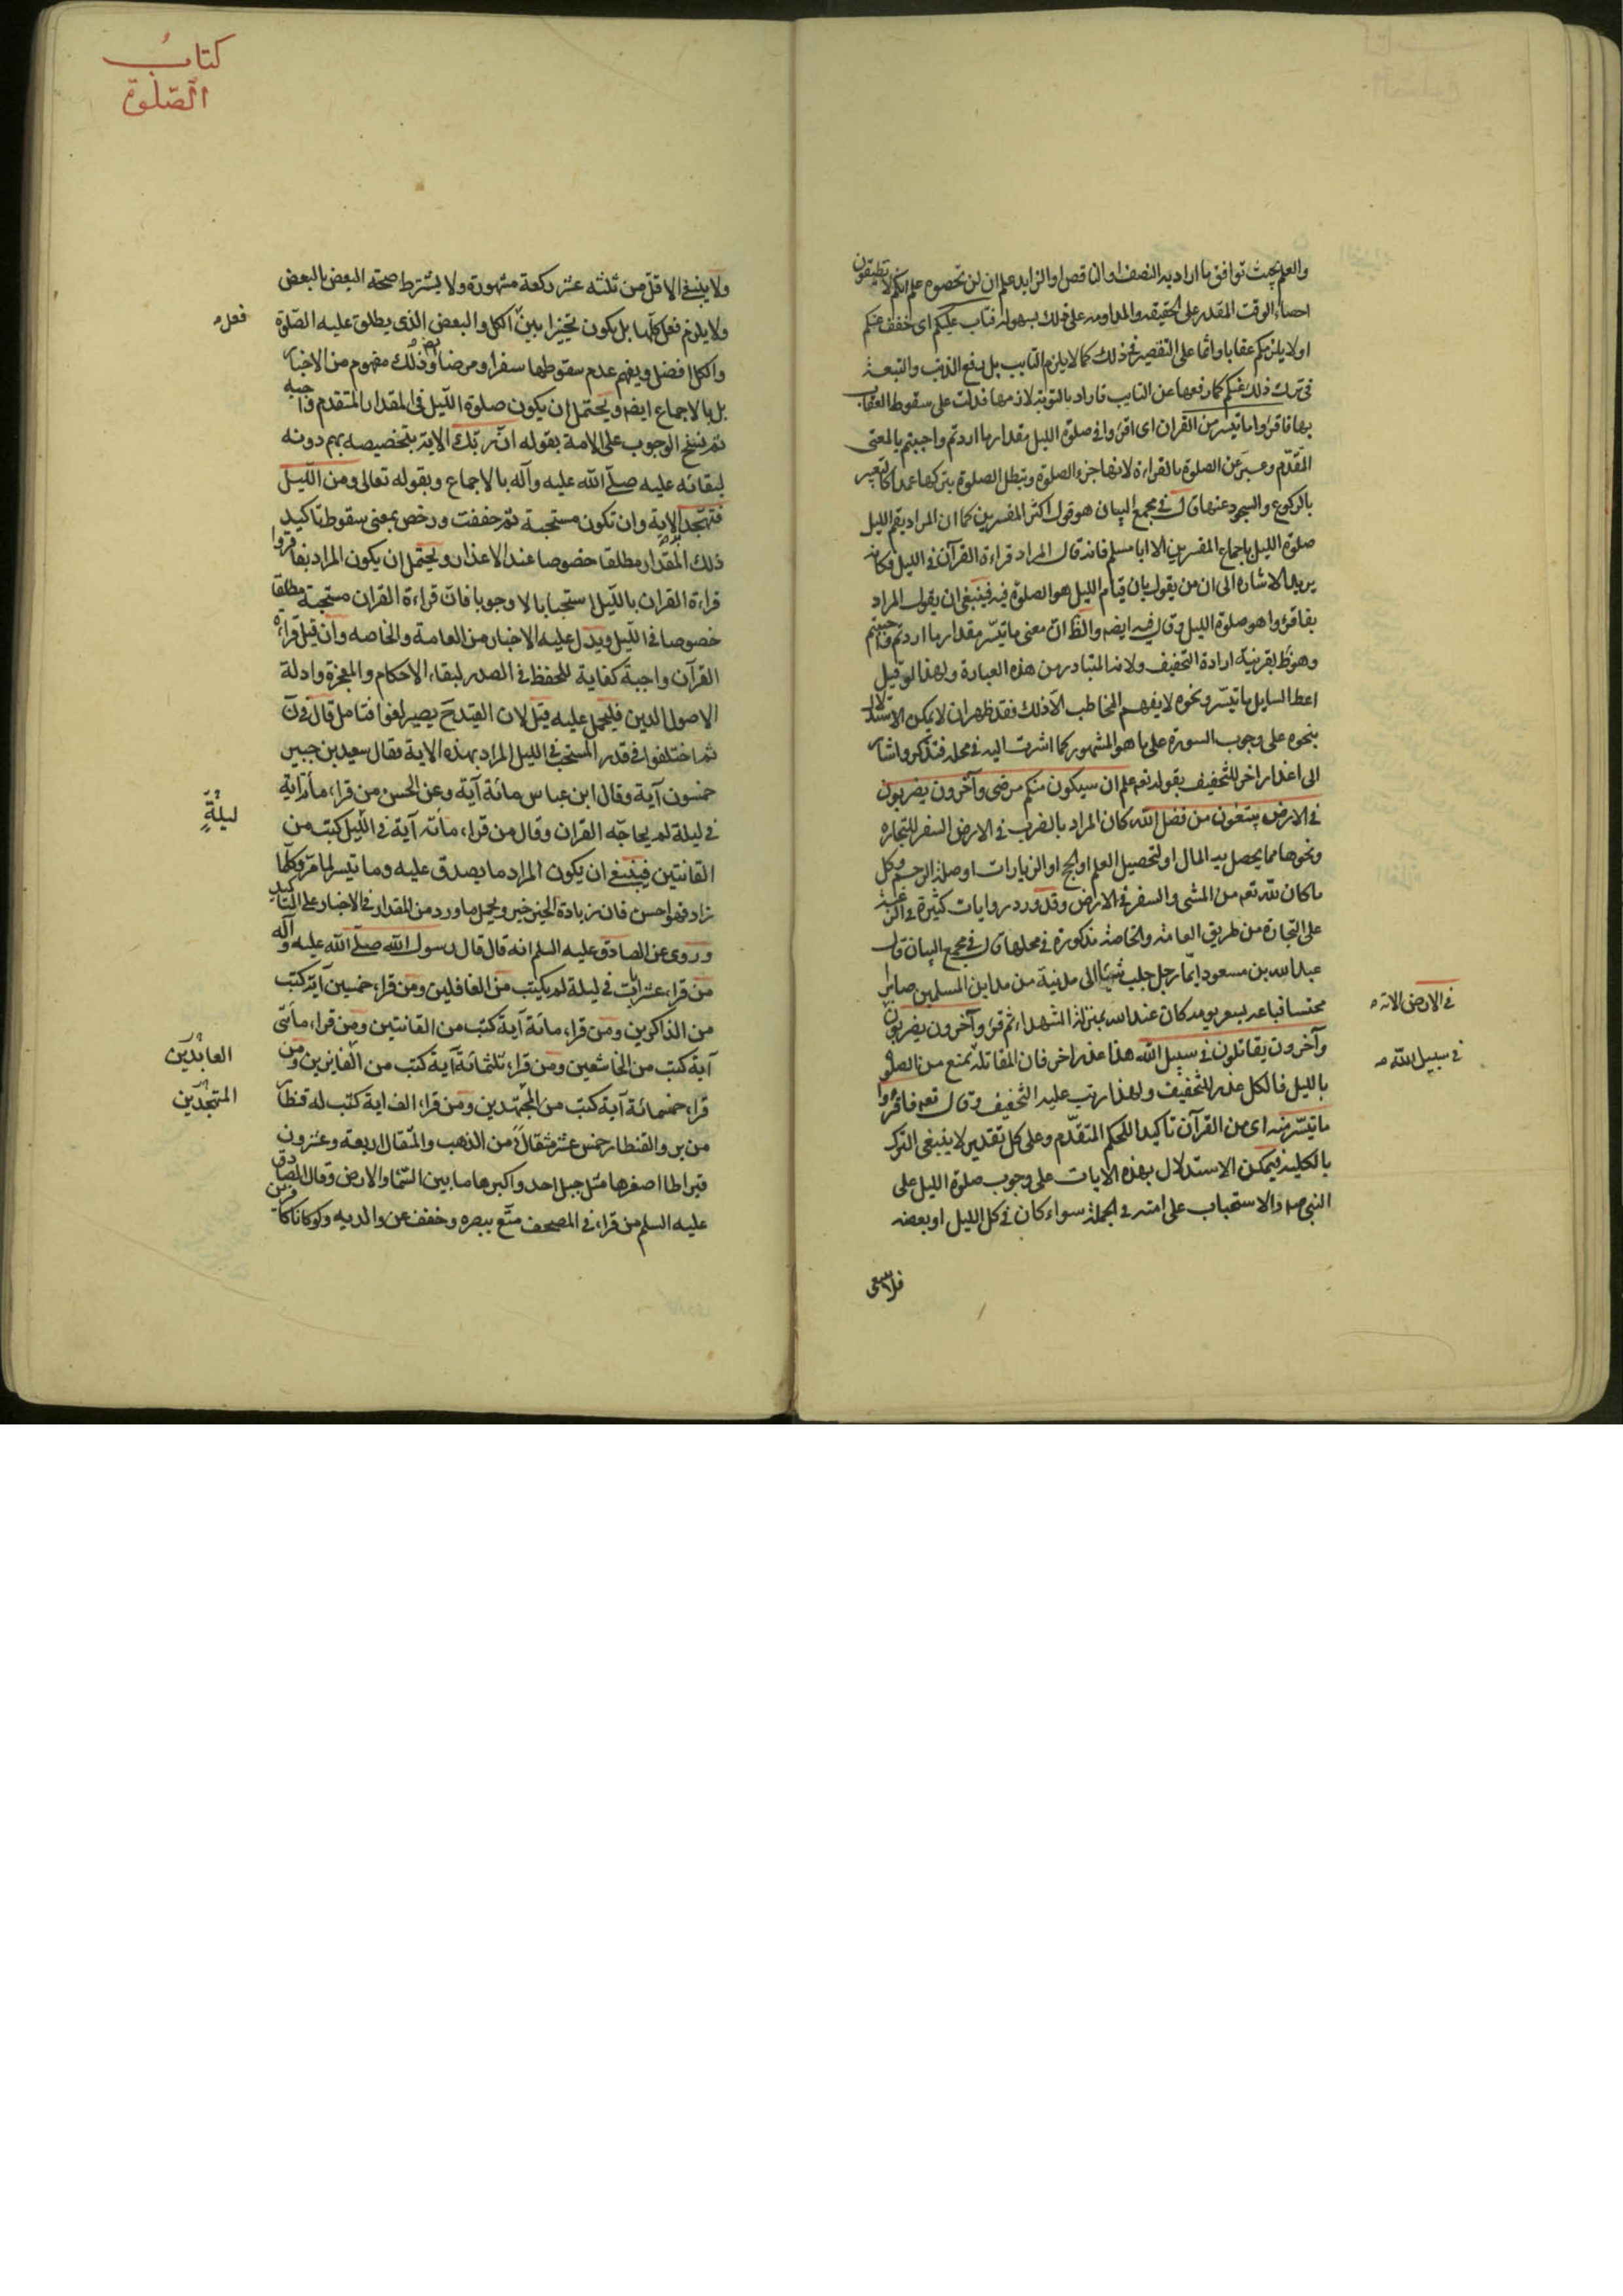 والعلم بحيث توافق ما اراد به النصف او الناقص او الزايد علم ان لن تحصوه علم انكم لا تطيقون
احصاء الوقت المقدر على الحقيقه والمداومه على ذلك بسهوله فتاب عليكم اى خفف عنكم
او لا يلزمكم عقابا واثما على التقصير فى ذلك كما لا يلزم التايب بل رفع الذنب والتبعة
فى ترك ذلك عنكم كما رفعها عن التايب فاراد بالتوبة لازمها فدلت على سقوط العقاب
بها فاقرؤا ما تيسر من القران اى اقرؤا فى صلوة الليل مقدار ما اردتم واحببتم بالمعنى
المقدّم وعبر عن الصلوة بالقراءة لانها جزء الصلوة وتبطل الصلوة بتركها عمدا كالتعبير
بالركوع والسجود عنها قال فى مجمع البيان هو قول اكثر المفسرين كما ان المراد بقم الليل
صلوة الليل باجماع المفسرين الا ابا مسلم فانه قال المراد قراءة القرآن فى الليل فكانه
يريد الاشارة الى ان من يقول بان قيام الليل هو الصلوة فيه فينبغى ان يقول المراد
بفاقرؤا هو صلوة الليل وقال فيه ايضه والظ ان معنى ما تيسّر مقدار ما اردتم واحببتم
وهو ظ بقرينة ارادة التخفيف ولانه المتبادر من هذه العبارة ولهذا لو قيل
اعط السايل ما تيسّر ونحوه لا يفهم المخاطب الّا ذلك فقد ظهر ان لا يمكن الاستدلال
بنحوه على وجوب السورة على ما هو المشهور كما اشرت اليه فى محله فتذكر واشار
الى اعذار اخر للتخفيف بقوله تعه علم ان سيكون منكم مرضى وآخرون يضربون
فى الارض يبتغون من فضل الله كان المراد بالضرب فى الارض السفر للتجاره
ونحوها مما يحصل به المال او لتحصيل العلم او الحج او الزيارات او صلة الرحم وكل
ما كان لله تعه من المشى والسفر فى الارض وقد ورد روايات كثيرة فى الترغيب
على التجارة من طريق العامة والخاصة مذكورة فى محلها قال فى مجمع البيان قال
عبد الله بن مسعود ايّما رجل جلب شيئا الى مدينة من مداين المسلمين صابرا
محتسبا فباعه بسعر يومه كان عند الله بمنزلة الشهداء ثم قرء وآخرون يضربون
فى الارض الاته
وآخرون يقاتلون فى سبيل الله هذا عذر اخر فان المقاتلة تمنع من الصلوة
فى سبيل الله
بالليل فالكل عذر للتخفيف ولهذا رتب عليه التخفيف وقال تعه فاقرؤا
ما تيسّر منه اى من القرآن تأكيدا للحكم المتقدّم وعلى كل تقدير لا ينبغى الترك
بالكلية فيمكن الاستدلال بهذه الايات على وجوب صلوة الليل على
النبى صه والاستحباب على امته فى الجملة سواء كان فى كل الليل او بعضه
كتاب
الصّلوة
ولا ينفى الاقلّ من ثلثه عشر ركعة مشهودة ولا يشترط صحة البعض بالبعض
ولا يلزم فعل كلها بل يكون تخييرا بين الكل والبعض الذى يطلق عليه الصّلوة
فعل
والكل افضل ويفهم عدم سقوطها سفرا ومرضا وذلك مفهوم من الاخبار
بل بالاجماع ايضه ويحتمل ان يكون صلوة الليل فى المقدار المتقدم واجبه
ثم نسخ الوجوب على الامة بقوله انّ ربّك الاية بتخصيصه بهم دونه
لبقائه عليه صلّى الله عليه وآله بالاجماع وبقوله تعالى ومن اللّيل
فتهجّد الاية وان تكون مستحبة ثم خففت ورخص بمعنى سقوط تاكيد
ذلك المقدار مطلقا خصوصا عند الاعذار ويحتمل ان يكون المراد بفاقرؤا
قراءة القران باللّيل استحبابا لا وجوبا فان قراءة القران مستحبة مطلقا
خصوصا فى اللّيل ويدل عليه الاخبار من العامة والخاصه وان قيل قراءة
القرآن واجبة كفاية للحفظ فى الصدر لبقاء الاحكام والمعجزة وادلة
الاصول الدين فليحمل عليه قيل لان القيد ح يصير لغوا فتامل قال فى ن
ثم اختلفوا فى قدر المستحب فى الليل المراد بهذه الاية فقال سعيد بن جبير
خمسون آية وقال ابن عباس مائة آية وعن الحسن من قراء مأة اية
فى ليلة لم يحاجّه القران وقال من قراء مأته آية فى اللّيل كتب من
ليلةٍ
القانتين فينبغى ان يكون المراد ما يصدق عليه وما تيسر لما مرّ وكلّما
زاد فهو احسن فان زيادة الخير خير ويحمل ما ورد من المقدار فى الاخبار على التّاكيد
وروى عن الصادق عليه السلم انه قال قال رسول الله صلّى الله عليه وآله
من قراء عشر ايات فى ليلة لم يكتب من الغافلين ومن قراء خمسين آية كتب
من الذاكرين ومن قراء مائة آية كتب من القانتين ومن قراء مأتى
آية كتب من الخاشعين ومن قراء ثلثمائة آية كتب من الفايزين ومن
العابدين
قراء خمسمائة آية كتب من المجتهدين ومن قراء الف اية كتب له قنطار
المتهجّدين
من بر والقنطار خمس عشر مثقالا من الذهب والمثقال اربعة وعشرون
قيراطا اصغرها مثل جبل احد واكبرها ما بين السّماء والارض وقال الصّادق
عليه السلم من قراء فى المصحف متّع ببصره وخفف عن والديه ولو كانا كافرين